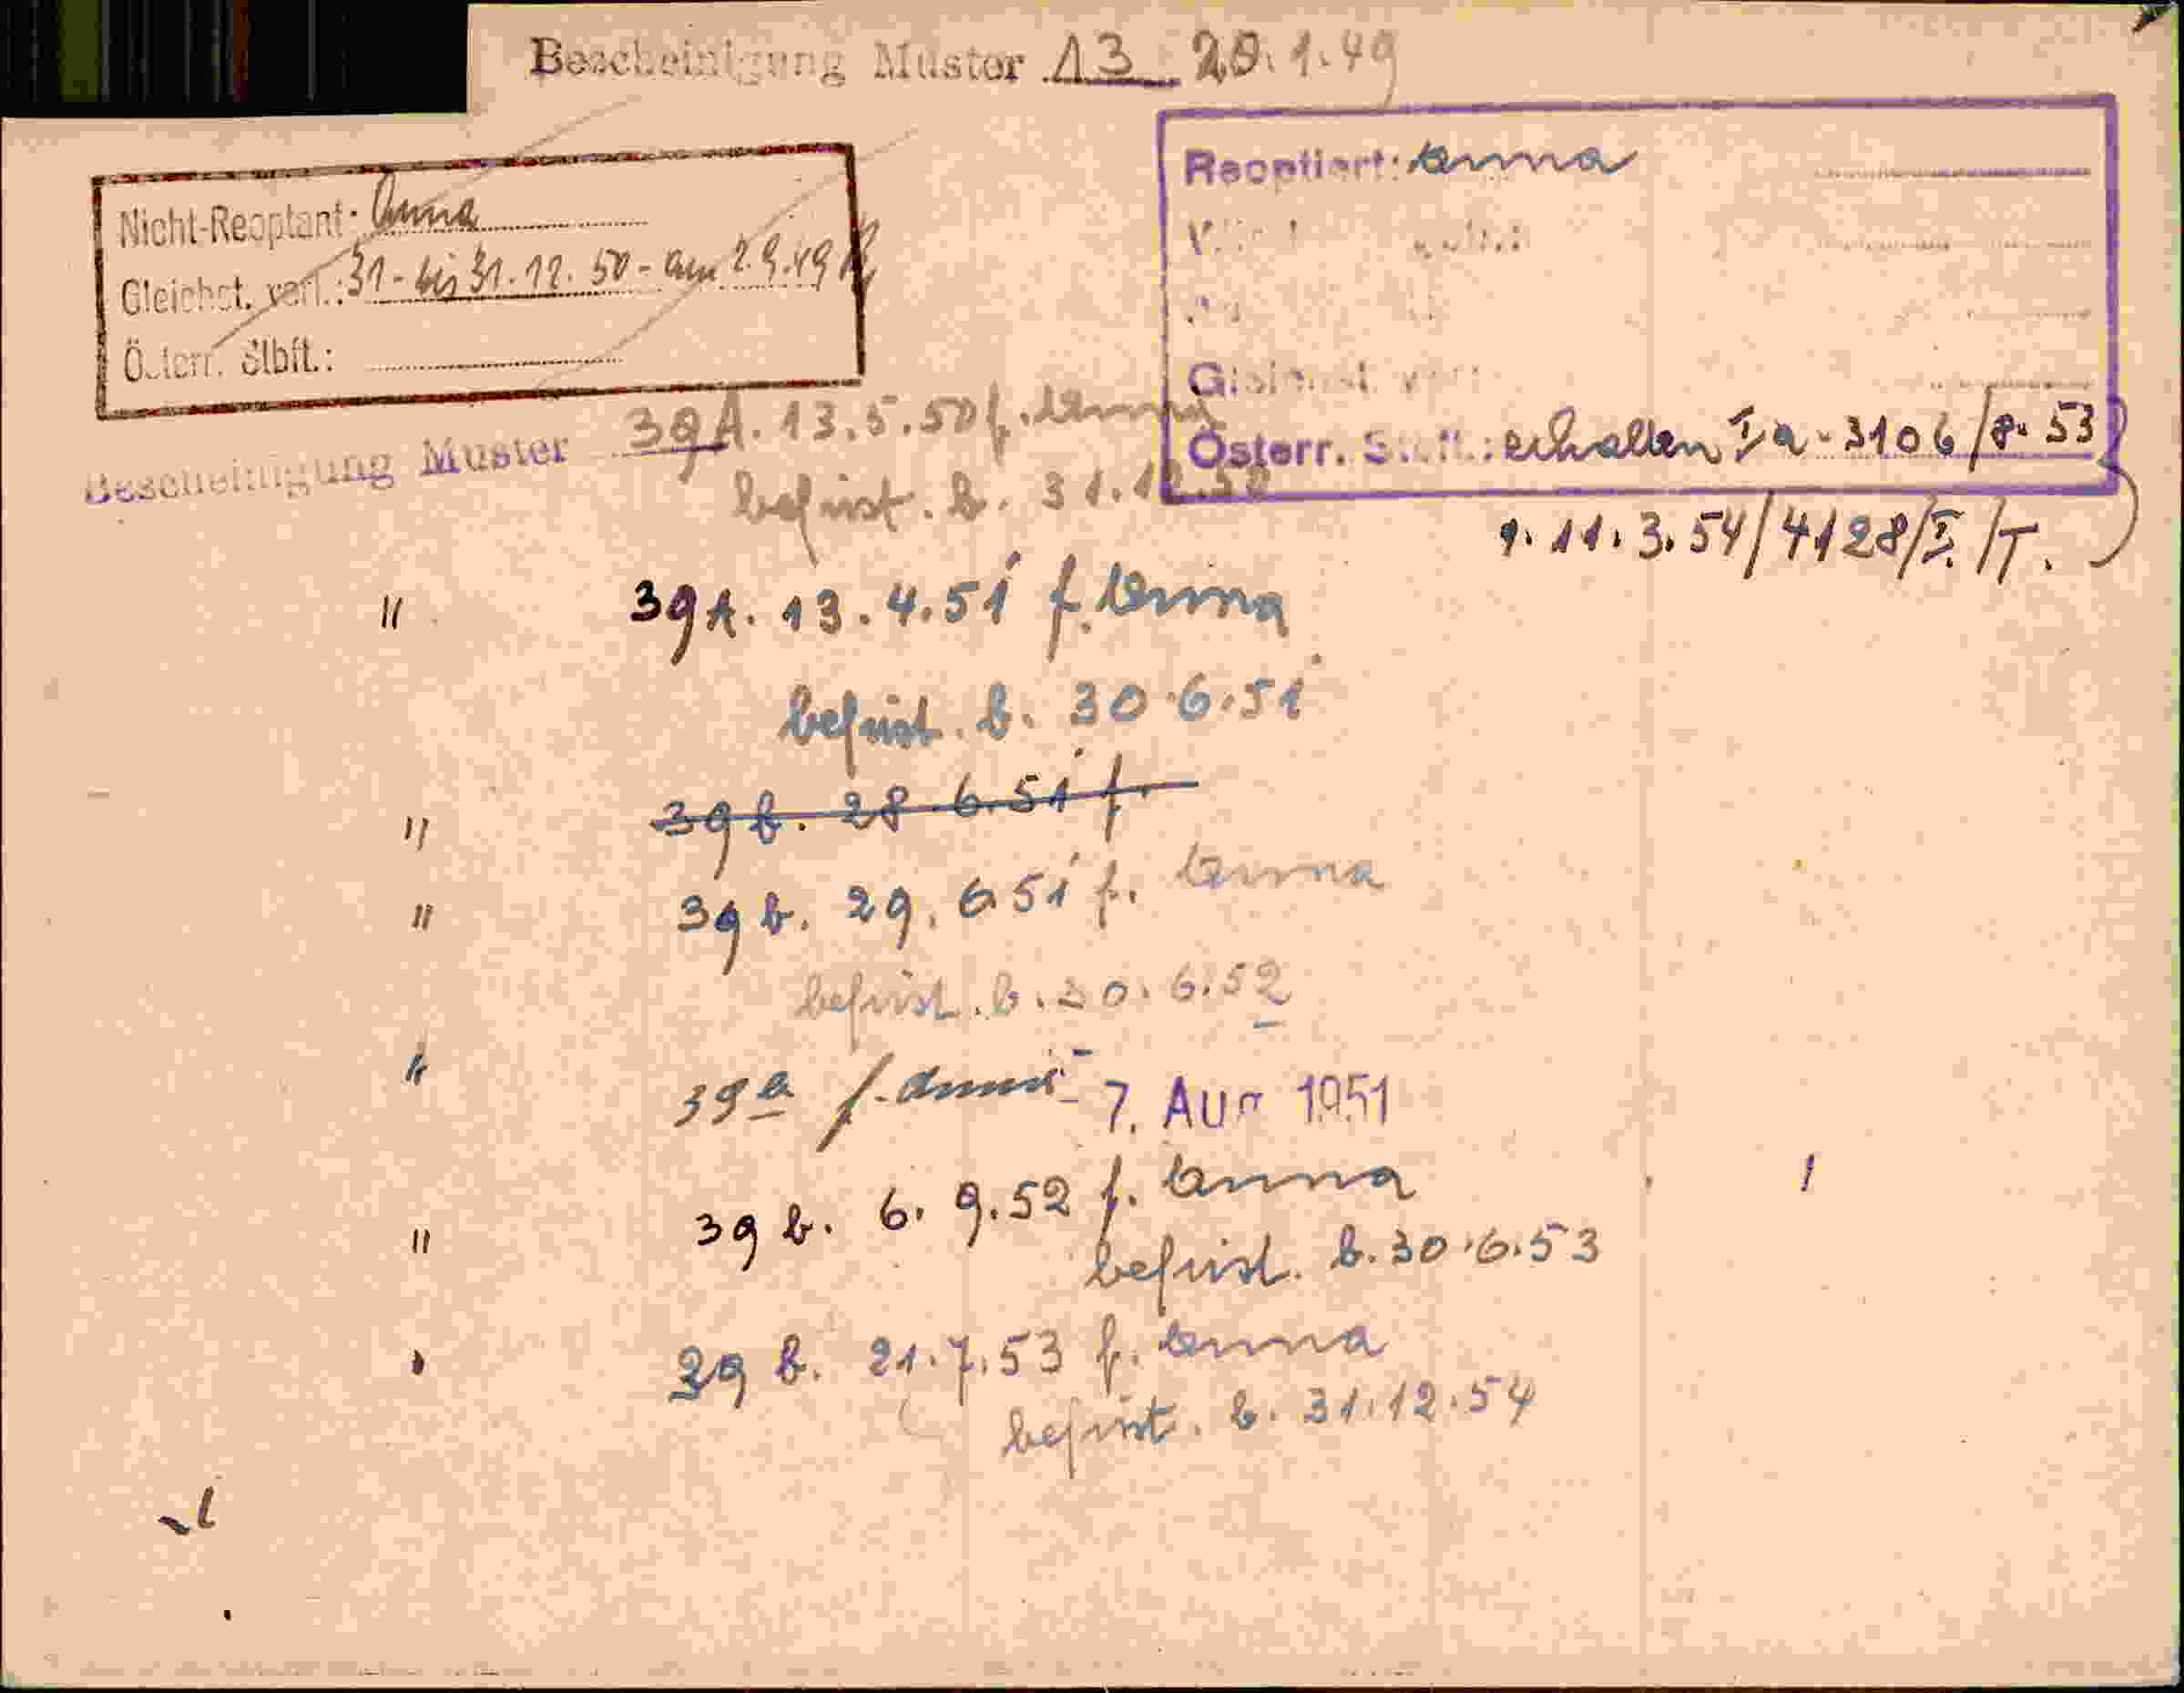 Bescheinigung Muster 13 20.1.49
Nicht-Reoptant: Anna
Gleichst. verl.: 31 - bis 31.12.50 - am 2.9.49
Österr. Stbft.:
Reoptiert: Anna
Gleichst. verl.:
Österr. Stbft.: erhalten Ia - 3106/8.53
v. 11.3.54/4128/I/T.
Bescheinigung Muster 39A. 13.5.50 f. Anna
befrist. b. 31.12.50
" 39A. 13.4.51 f. Anna
befrist. b. 30.6.51
" 39 b. 28.6.51 f.
" 39 b. 29.6.51 f. Anna
befrist. b. 30.6.52
" 39 a f. Anna - 7. Aug 1951
" 39 b. 6.9.52 f. Anna
befrist. b. 30.6.53
39 b. 21.7.53 f. Anna
befrist. b. 31.12.54